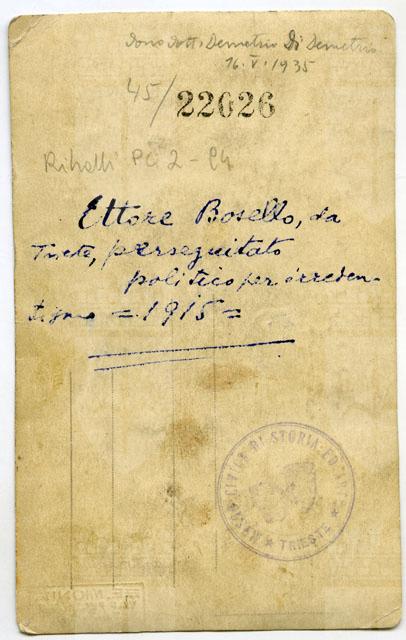 Dono dott. Demetrio Di Demetrio
16.V.1935
45/22026
Ritratti PC 2 -
Ettore Bosello, da
perseguitato
politico per irreden-
tismo = 1915 =
CIVICO MUSEO DI STORIA ED ARTE ★ TRIESTE ★